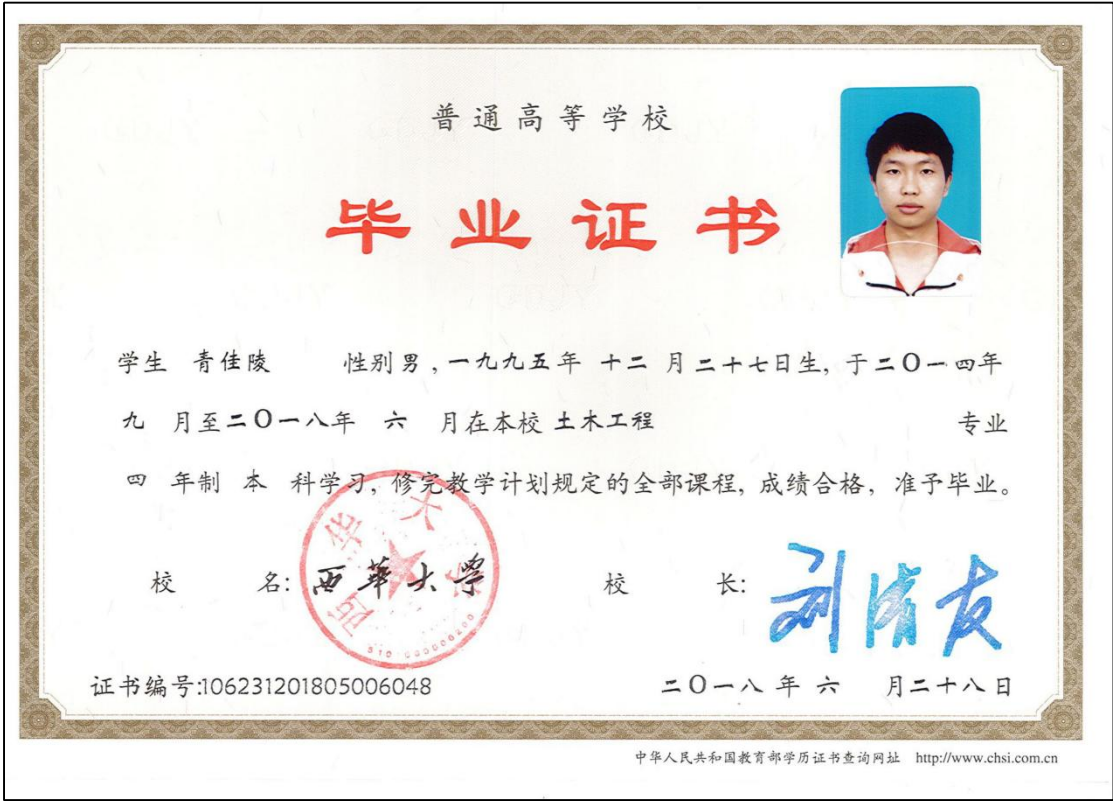 普通高等学校
毕业证书
学生 青佳陵 性别男,一九九五年 十二 月二十七日生,于二〇一四年
九 月至二〇一八年 六 月在本校 土木工程 专业
四 年制 本 科学习,修完教学计划规定的全部课程,成绩合格,准予毕业。
校 名:西华大学 校 长:刘清友
西华大学
证书编号:106231201805006048 二〇一八年 六 月二十八日
中华人民共和国教育部学历证书查询网址 http://www.chsi.com.cn